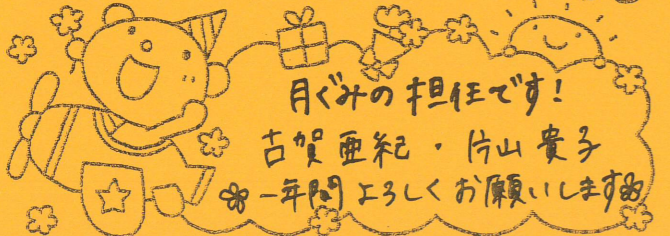 月ぐみの担任です!
古賀亜紀・片山貴子
一年間よろしくお願いします